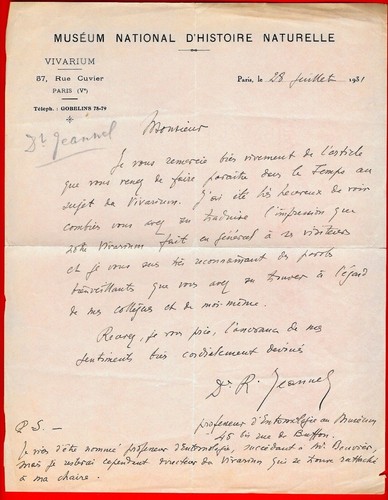 MUSÉUM NATIONAL D'HISTOIRE NATURELLE
VIVARIUM
57, Rue Cuvier
PARIS (Vᵉ)
Téleph. : GOBELINS 78-79
Paris, le 28 juillet 1931
Dr Jeannel
Monsieur
Je vous remercie très vivement de l'article
que vous venez de faire paraître dans le Temps au
sujet du Vivarium. J'ai été très heureux de voir
combien vous avez su traduire l'impression que
notre Vivarium fait en général à ses visiteurs
et je vous suis très reconnaissant des paroles
bienveillantes que vous avez su trouver à l'égard
de mes collègues et de moi-même.
Recevez, je vous prie, l'assurance de mes
sentiments très cordialement dévoués
Dr R. Jeannel
professeur d'Entomologie au Muséum
45 bis rue de Buffon.
P.S. —
Je viens d'être nommé professeur d'Entomologie, succédant à Mr Bouvier,
mais je resterai cependant directeur du Vivarium qui se trouve rattaché
à ma chaire.